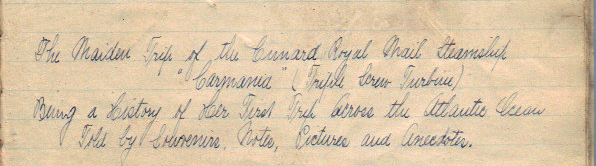 The Maiden Trip of the Cunard Royal Mail Steamship
"Carmania" (Triple Screw Turbine)
Being a History of Her First Trip across the Atlantic Ocean
Told by Souvenirs, Notes, Pictures and Anecdotes.